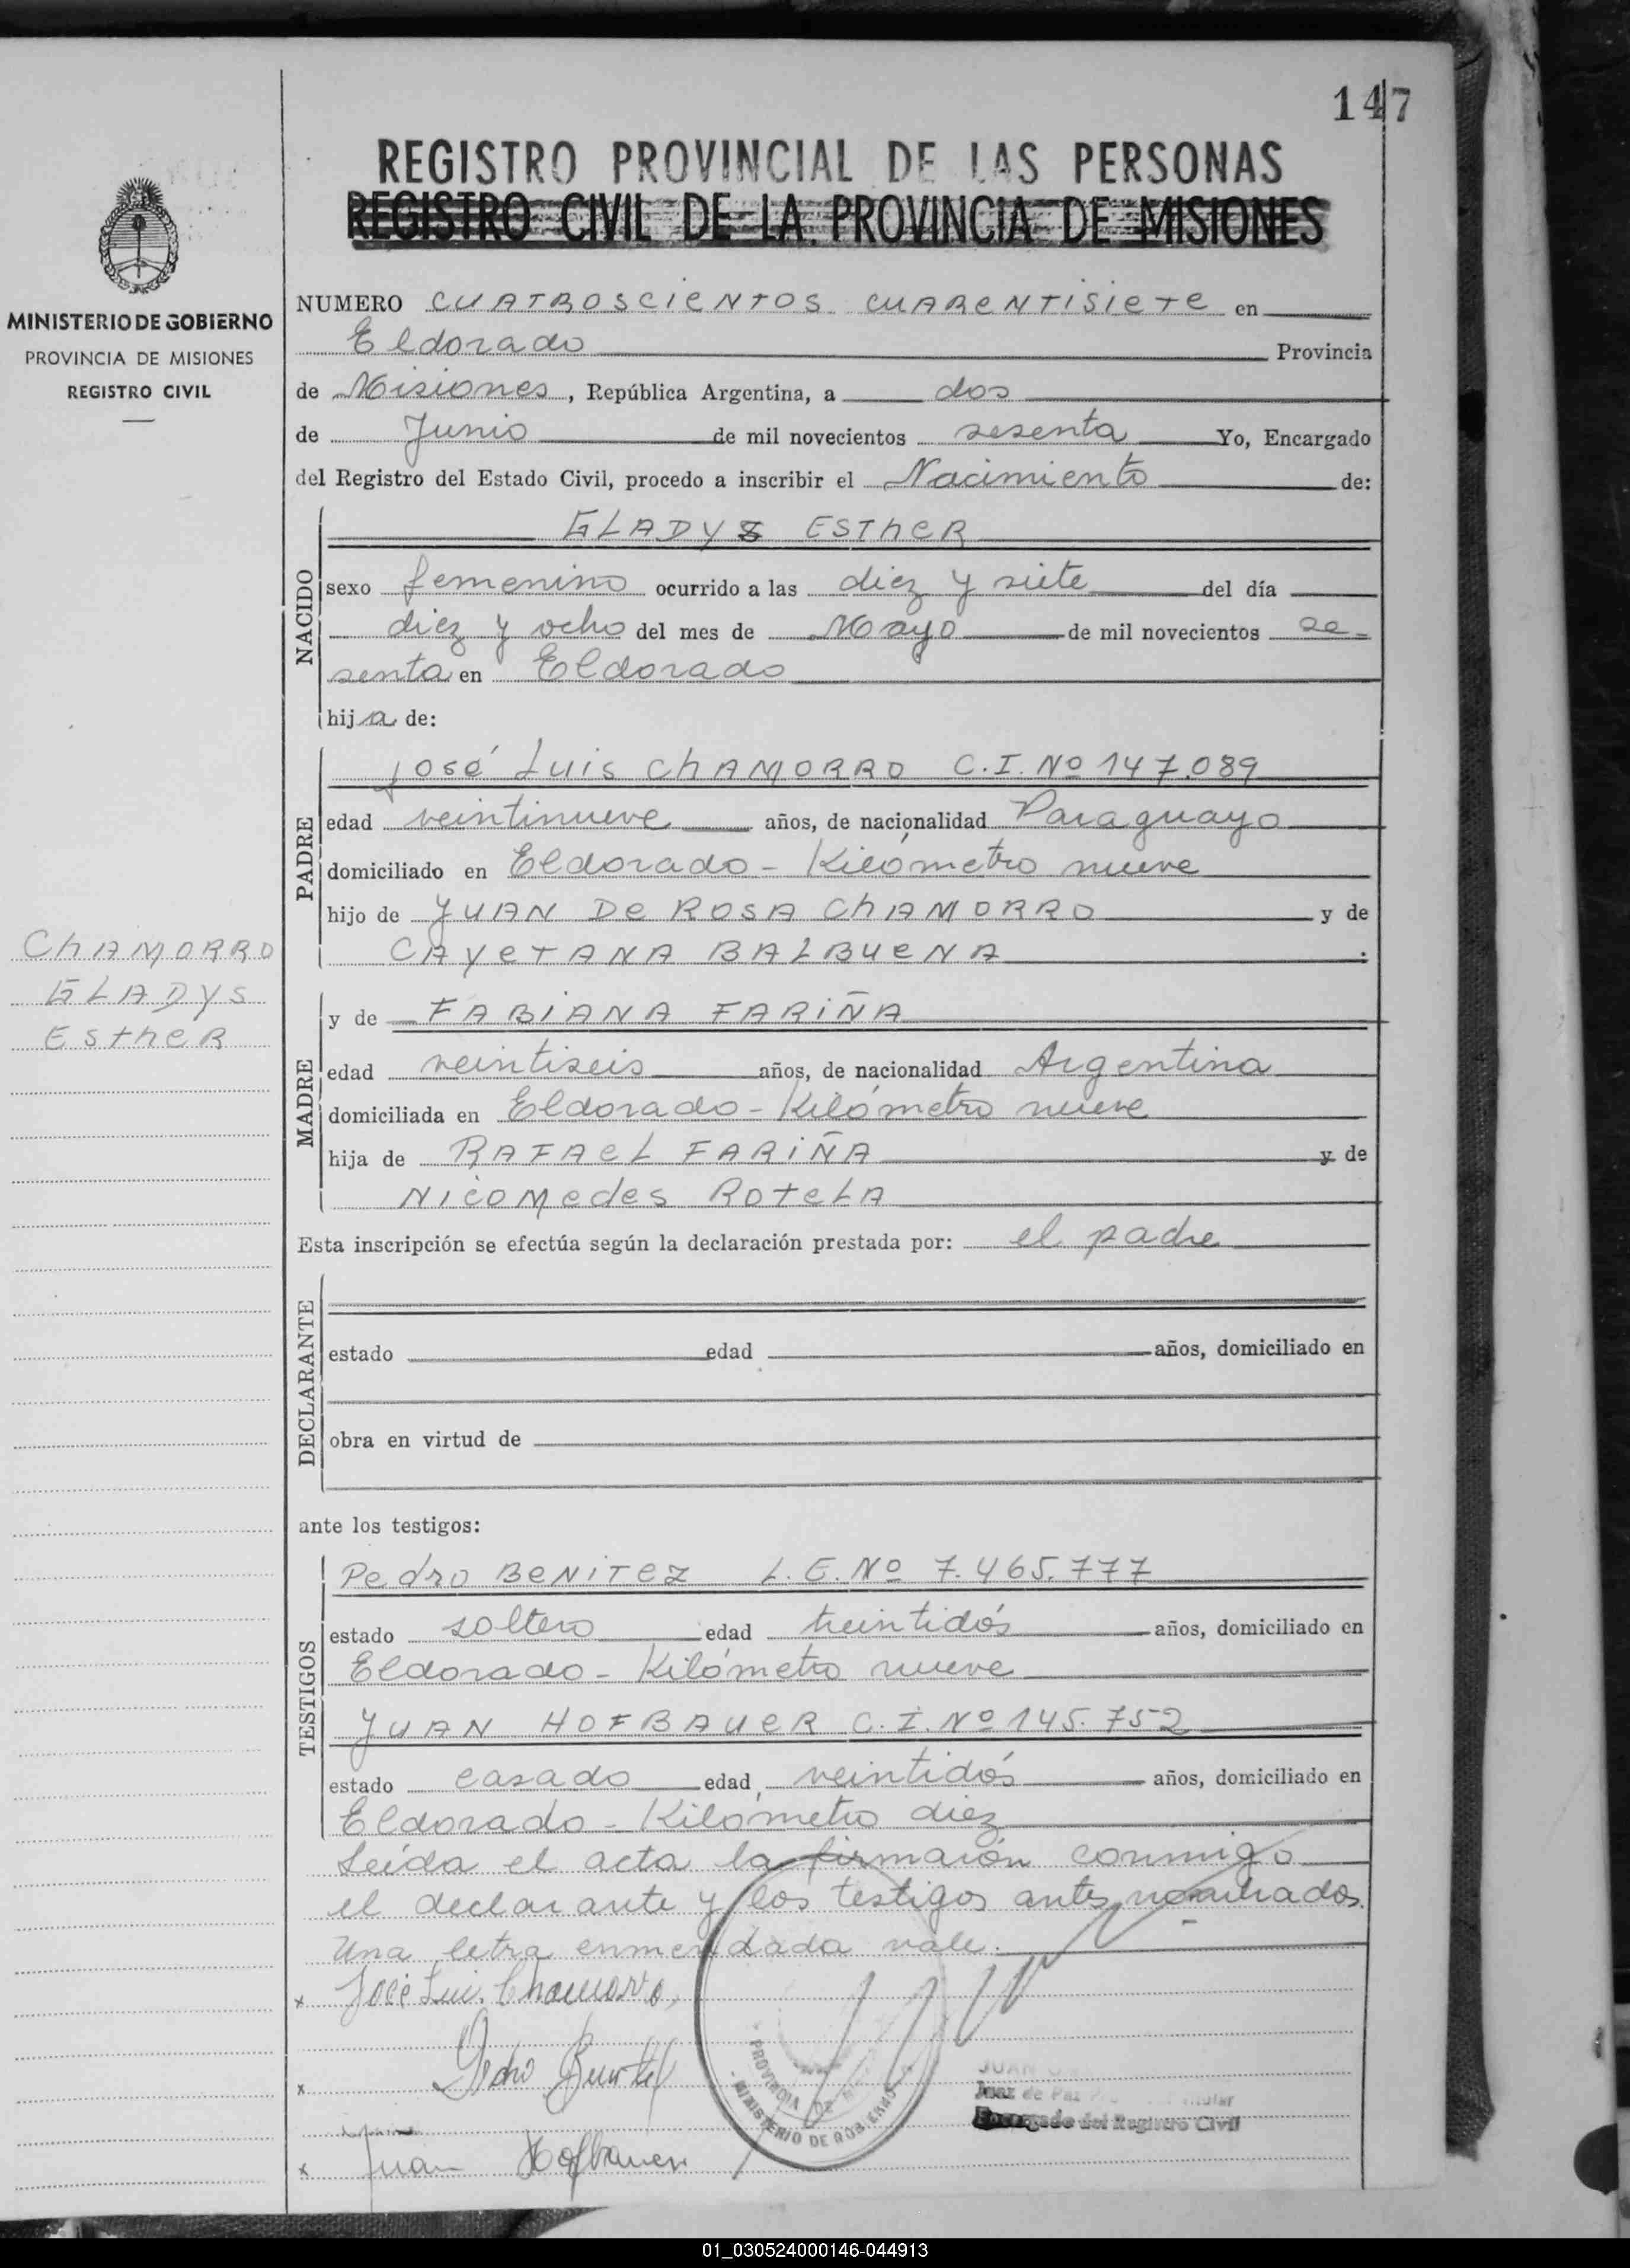 147
REGISTRO PROVINCIAL DE LAS PERSONAS
REGISTRO CIVIL DE LA PROVINCIA DE MISIONES
MINISTERIO DE GOBIERNO
PROVINCIA DE MISIONES
REGISTRO CIVIL
CHAMORRO
GLADYS
ESTHER
NUMERO CUATROSCIENTOS CUARENTISIETE en
Eldorado Provincia
de Misiones, República Argentina, a dos
de Junio de mil novecientos sesenta Yo, Encargado
del Registro del Estado Civil, procedo a inscribir el Nacimiento de:
NACIDO
GLADYS ESTHER
sexo femenino ocurrido a las diez y siete del día
diez y ocho del mes de Mayo de mil novecientos se-
senta en Eldorado
hija de:
PADRE
José Luis CHAMORRO C.I. Nº 147.089
edad veintinueve años, de nacionalidad Paraguayo
domiciliado en Eldorado - Kilómetro nueve
hijo de JUAN DE ROSA CHAMORRO y de
CAYETANA BALBUENA.
MADRE
y de FABIANA FARIÑA
edad veintiseis años, de nacionalidad Argentina
domiciliada en Eldorado - Kilómetro nueve
hija de RAFAEL FARIÑA y de
NICOMEDES ROTELA
Esta inscripción se efectúa según la declaración prestada por: el padre
DECLARANTE
estado edad años, domiciliado en
obra en virtud de
ante los testigos:
TESTIGOS
Pedro BENITEZ L.E. Nº 7.465.777
estado soltero edad treintidós años, domiciliado en
Eldorado - Kilómetro nueve
JUAN HOFBAUER C.I. Nº 145.752
estado casado edad veintidós años, domiciliado en
Eldorado - Kilómetro diez
Leída el acta la firmaron conmigo
el declarante y los testigos antes nombrados.
Una letra enmendada vale.
x José Luis Chamorro
x Pedro Benitez
x Juan Hofbauer
PROVINCIA DE
MINISTERIO DE GOBIERNO
JUAN
Juez de Paz
Encargado del Registro Civil
01_030524000146-044913